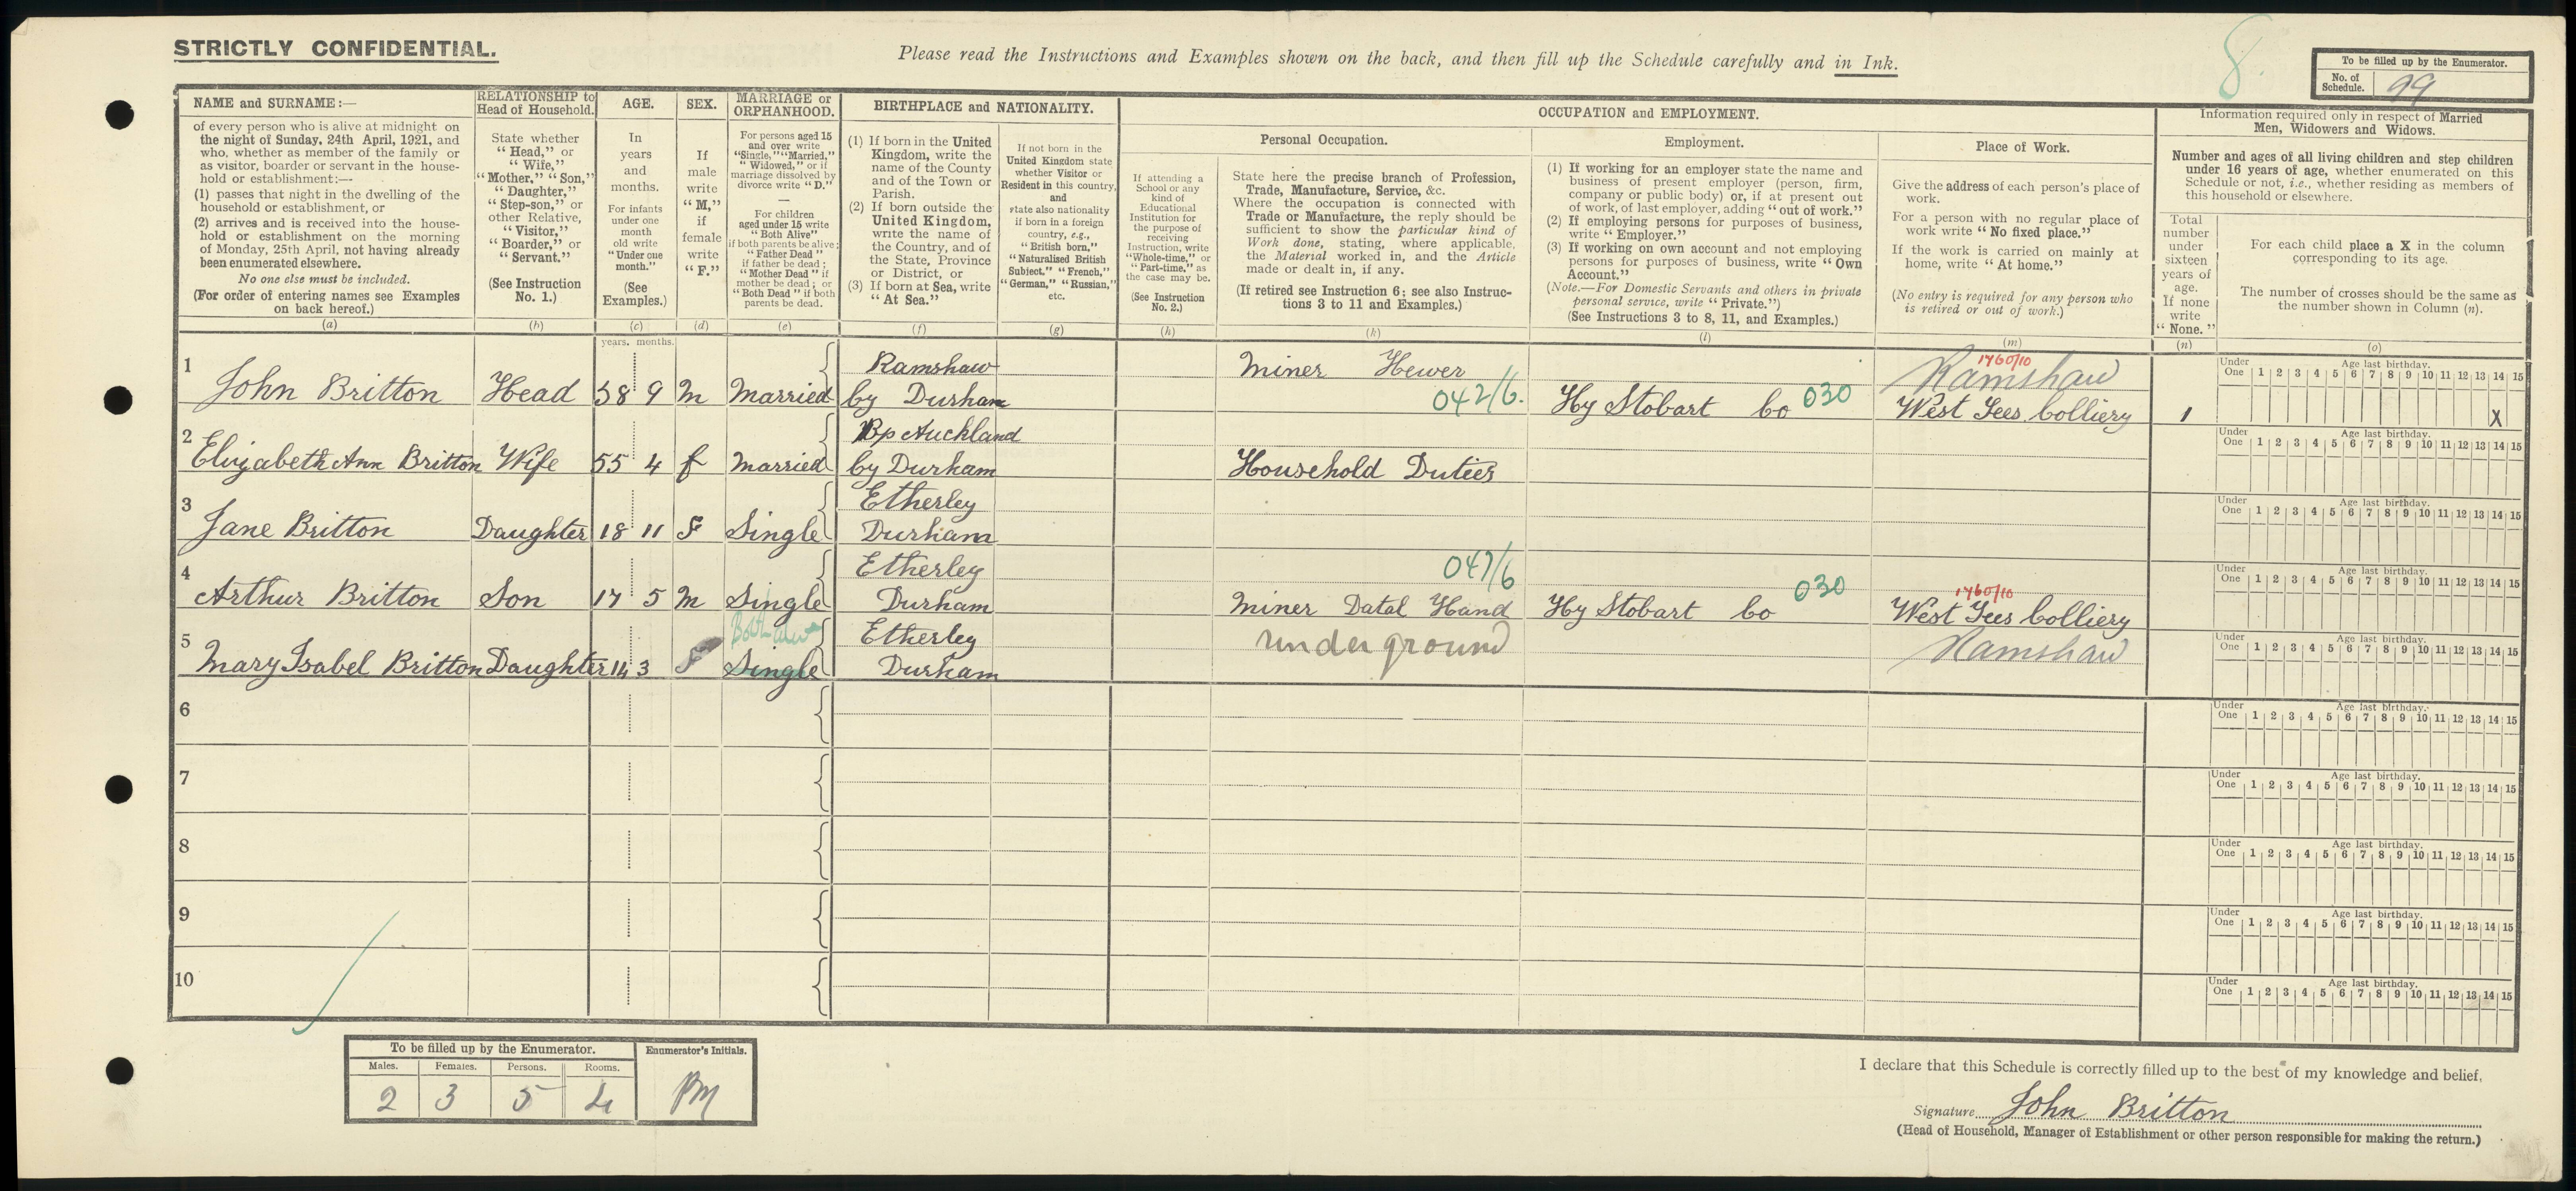 STRICTLY CONFIDENTIAL.
Please read the Instructions and Examples shown on the back, and then fill up the Schedule carefully and in Ink.
8
To be filled up by the Enumerator.
No. of Schedule. 99
NAME and SURNAME:—
of every person who is alive at midnight on
the night of Sunday, 24th April, 1921, and
who, whether as member of the family or
as visitor, boarder or servant in the house-
hold or establishment:—
(1) passes that night in the dwelling of the
household or establishment, or
(2) arrives and is received into the house-
hold or establishment on the morning
of Monday, 25th April, not having already
been enumerated elsewhere.
No one else must be included.
(For order of entering names see Examples
on back hereof.)
(a)
RELATIONSHIP to
Head of Household.
State whether
"Head," or
"Wife,"
"Mother," "Son,"
"Daughter,"
"Step-son," or
other Relative,
"Visitor,"
"Boarder," or
"Servant."
(See Instruction
No. 1.)
(b)
AGE.
In
years
and
months.
For infants
under one
month
old write
"Under one
month."
(See
Examples.)
(c)
SEX.
If
male
write
"M,"
if
female
write
"F."
(d)
MARRIAGE or
ORPHANHOOD.
For persons aged 15
and over write
"Single," "Married,"
"Widowed," or if
marriage dissolved by
divorce write "D."
—
For children
aged under 15 write
"Both Alive"
if both parents be alive;
"Father Dead"
if father be dead;
"Mother Dead" if
mother be dead; or
"Both Dead" if both
parents be dead.
(e)
BIRTHPLACE and NATIONALITY.
(1) If born in the United
Kingdom, write the
name of the County
and of the Town or
Parish.
(2) If born outside the
United Kingdom,
write the name of
the Country, and of
the State, Province
or District, or
(3) If born at Sea, write
"At Sea."
(f)
If not born in the
United Kingdom state
whether Visitor or
Resident in this country,
and
state also nationality
if born in a foreign
country, e.g.,
"British born,"
"Naturalised British
Subject," "French,"
"German," "Russian,"
etc.
(g)
OCCUPATION and EMPLOYMENT.
If attending a
School or any
kind of
Educational
Institution for
the purpose of
receiving
Instruction, write
"Whole-time," or
"Part-time," as
the case may be.
(See Instruction
No. 2.)
(h)
Personal Occupation.
State here the precise branch of Profession,
Trade, Manufacture, Service, &c.
Where the occupation is connected with
Trade or Manufacture, the reply should be
sufficient to show the particular kind of
Work done, stating, where applicable,
the Material worked in, and the Article
made or dealt in, if any.
(If retired see Instruction 6; see also Instruc-
tions 3 to 11 and Examples.)
(k)
Employment.
(1) If working for an employer state the name and
business of present employer (person, firm,
company or public body) or, if at present out
of work, of last employer, adding "out of work."
(2) If employing persons for purposes of business,
write "Employer."
(3) If working on own account and not employing
persons for purposes of business, write "Own
Account."
(Note.—For Domestic Servants and others in private
personal service, write "Private.")
(See Instructions 3 to 8, 11, and Examples.)
(l)
Place of Work.
Give the address of each person's place of
work.
For a person with no regular place of
work write "No fixed place."
If the work is carried on mainly at
home, write "At home."
(No entry is required for any person who
is retired or out of work.)
(m)
Information required only in respect of Married
Men, Widowers and Widows.
Number and ages of all living children and step children
under 16 years of age, whether enumerated on this
Schedule or not, i.e., whether residing as members of
this household or elsewhere.
Total
number
under
sixteen
years of
age.
If none
write
"None."
(n)
For each child place a X in the column
corresponding to its age.
The number of crosses should be the same as
the number shown in Column (n).
(o)
years. months.
1 John Britton Head 58 9 M Married Ramshaw by Durham Miner Hewer 042/6. Hy Stobart Co 030 1760/10 Ramshaw West Tees Colliery 1 X
Under One Age last birthday. 1 2 3 4 5 6 7 8 9 10 11 12 13 14 15
2 Elizabeth Ann Britton Wife 55 4 f Married Bp Auckland by Durham Household Duties
Under One Age last birthday. 1 2 3 4 5 6 7 8 9 10 11 12 13 14 15
3 Jane Britton Daughter 18 11 F Single Etherley Durham
Under One Age last birthday. 1 2 3 4 5 6 7 8 9 10 11 12 13 14 15
4 Arthur Britton Son 17 5 M Single Etherley Durham Miner Datal Hand underground 047/6 Hy Stobart Co 030 1760/10 West Tees Colliery Ramshaw
Under One Age last birthday. 1 2 3 4 5 6 7 8 9 10 11 12 13 14 15
5 Mary Isabel Britton Daughter 14 3 F Both alive Single Etherley Durham
Under One Age last birthday. 1 2 3 4 5 6 7 8 9 10 11 12 13 14 15
6
Under One Age last birthday. 1 2 3 4 5 6 7 8 9 10 11 12 13 14 15
7
Under One Age last birthday. 1 2 3 4 5 6 7 8 9 10 11 12 13 14 15
8
Under One Age last birthday. 1 2 3 4 5 6 7 8 9 10 11 12 13 14 15
9
Under One Age last birthday. 1 2 3 4 5 6 7 8 9 10 11 12 13 14 15
10
Under One Age last birthday. 1 2 3 4 5 6 7 8 9 10 11 12 13 14 15
To be filled up by the Enumerator.
Enumerator's Initials.
Males. Females. Persons. Rooms.
2 3 5 4 PM
I declare that this Schedule is correctly filled up to the best of my knowledge and belief.
Signature John Britton
(Head of Household, Manager of Establishment or other person responsible for making the return.)